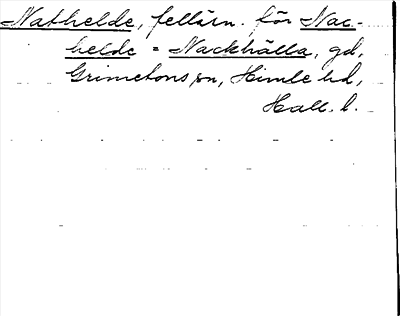 Nathelde, felläsn. för Nac-
helde = Nackhälla, gd,
Grimetons sn, Himle hd,
Hall. l.